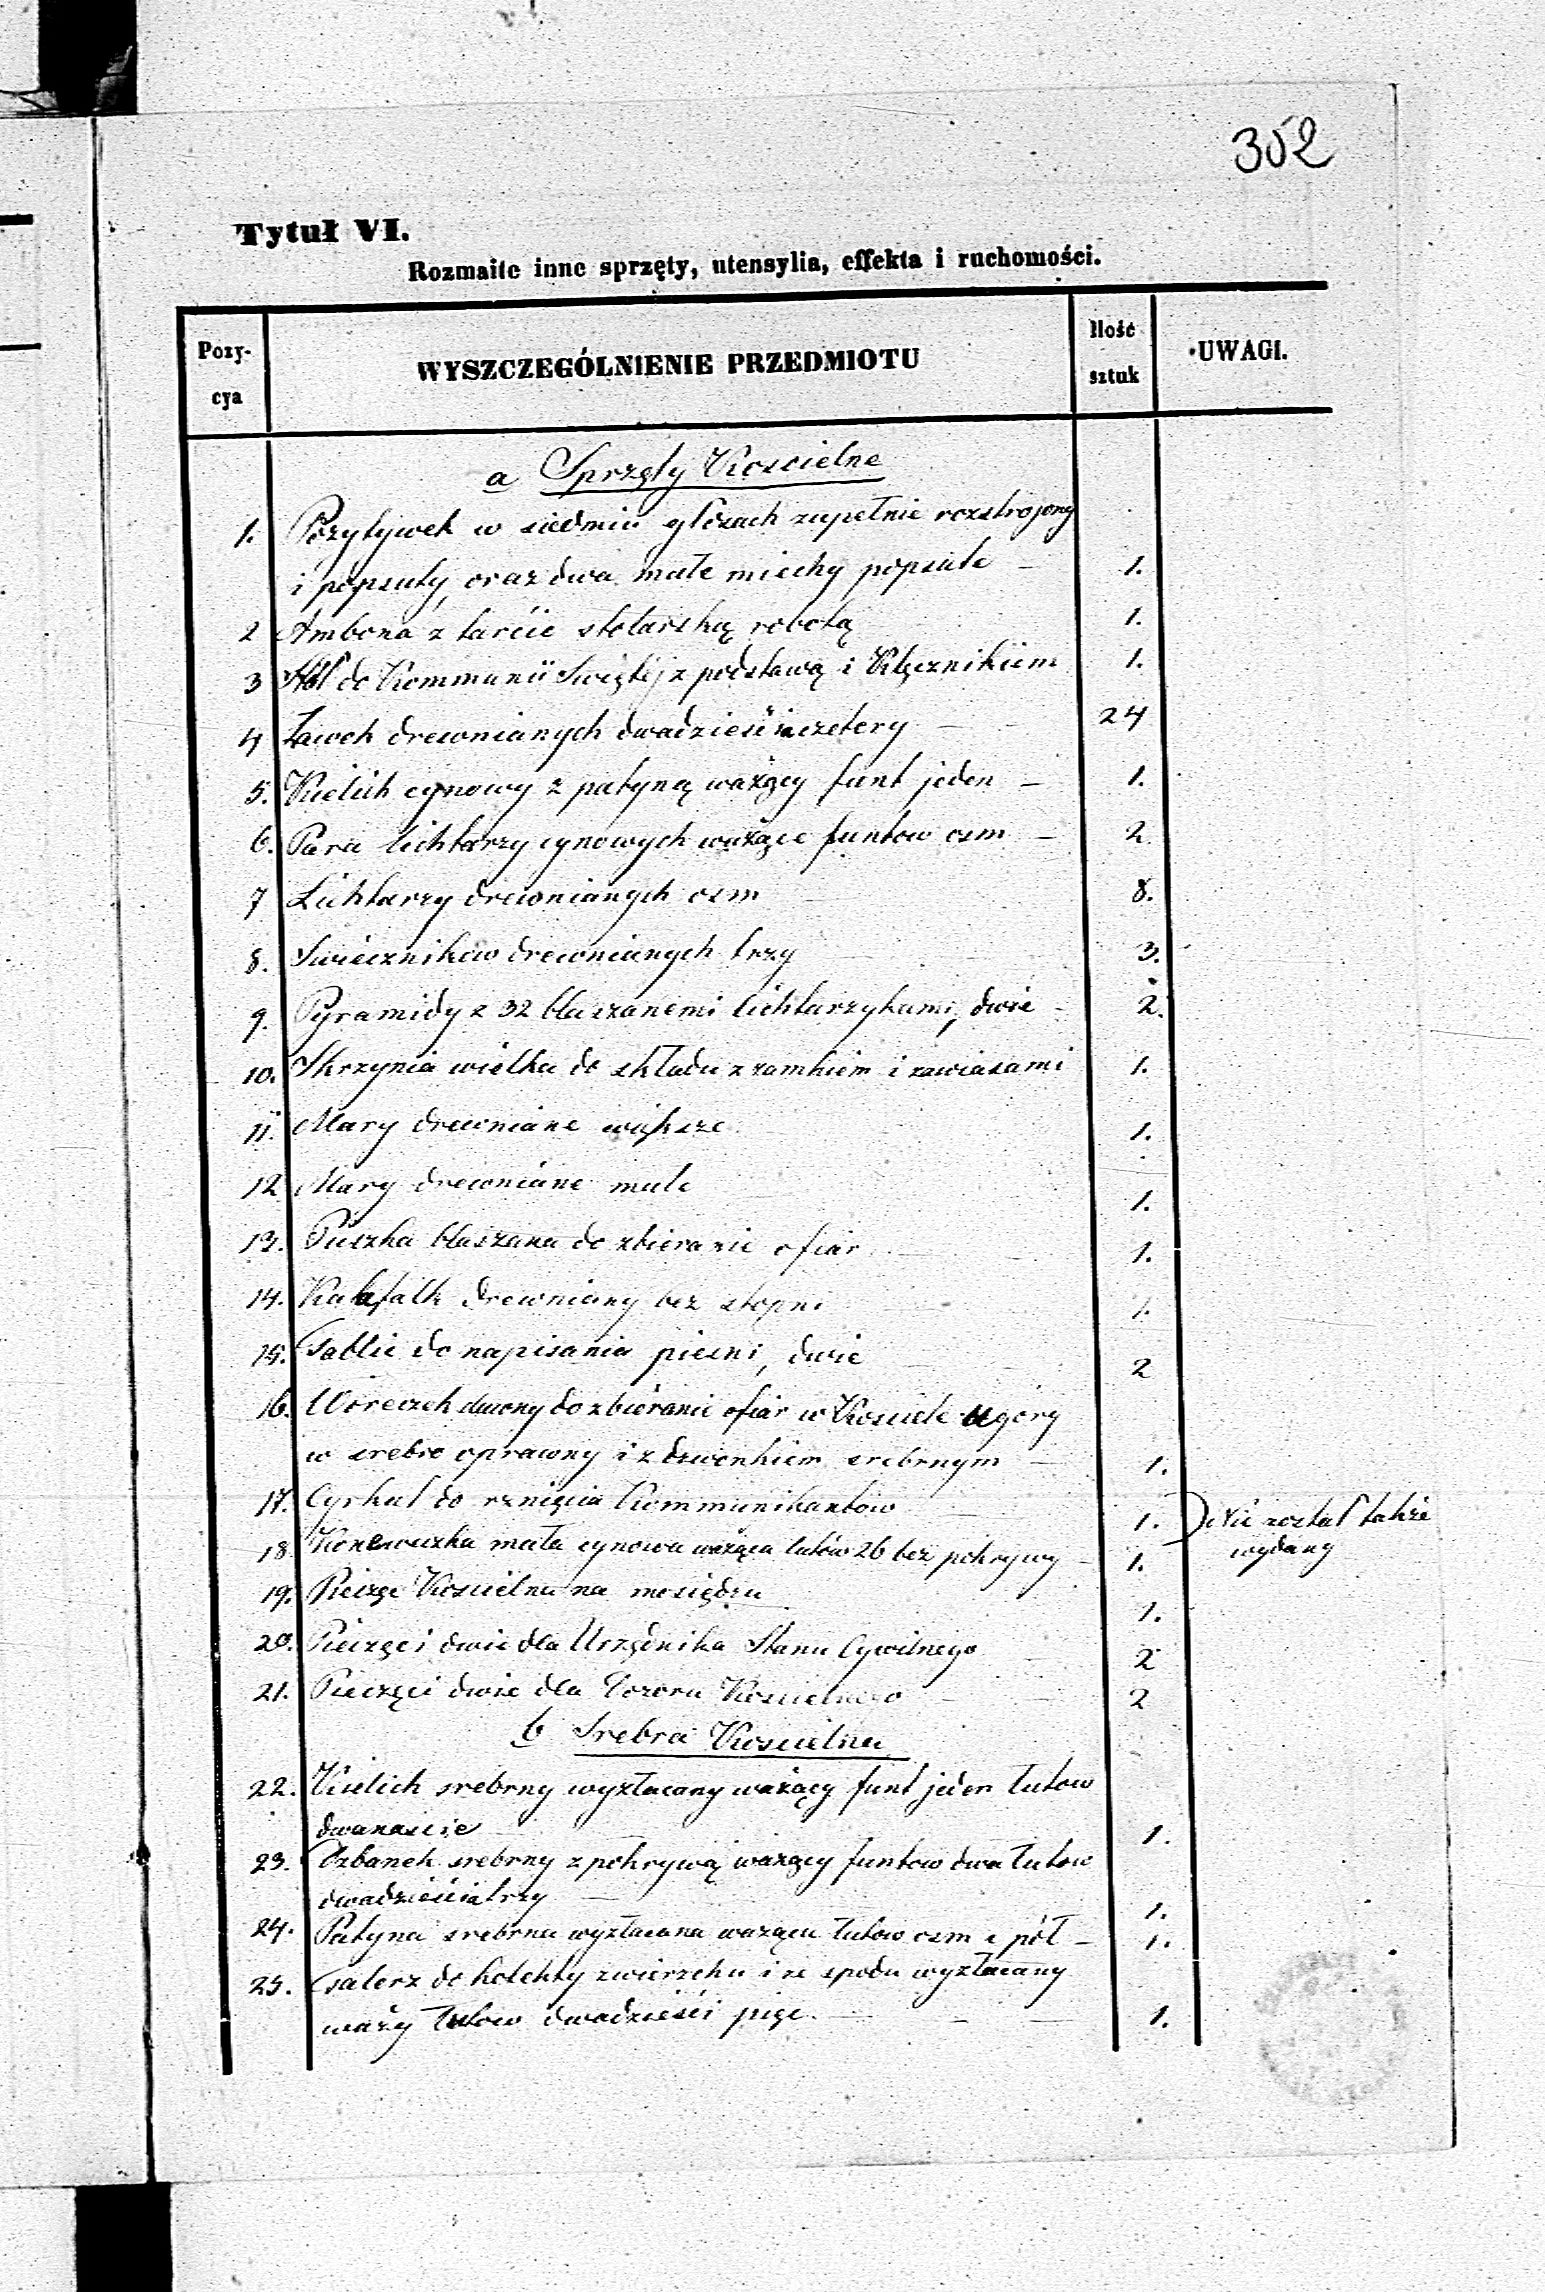 352
Tytuł VI.
Rozmaite inne sprzęty, utensylia, effekta i ruchomości.
Pozy-
cya
WYSZCZEGÓLNIENIE PRZEDMIOTU
Ilość
sztuk
UWAGI.
a Sprzęty Koscielne
1. Pozytywek w siedmiu głosach zupełnie rozstrojony
i popsuty, oraz dwa małe miechy popsute – 1.
2 Ambona z tarcic stolarską robotą 1.
3 Stół do Kommunii Swiętéj z podstawą i Klęcznikiem 1.
4 Ławek drewnianych dwadzieścia cztery – 24
5. Kielich cynowy z patyną ważący funt jeden – 1.
6. Para lichtarzy cynowych ważące funtow osm – 2
7 Lichtarzy drewnianych osm 8.
8. Swieczników drewnianych trzy 3.
9. Pyramidy z 32 blaszanemi lichtarzykami, dwie – 2.
10. Skrzynia wielka do składu z zamkiem i zawiasami 1.
11. Mary drewniane większe 1.
12 Mary drewniane małe 1.
13. Puszka blaszana do zbierania ofiar 1.
14. Katafalk drewniany bez stopni 1.
15. Tablic do napisania piesni, dwie 2
16. Woreczek do zbierania ofiar w Kosciele u góry
w srebro oprawny i z dzwonkiem srebrnym – 1.
17. Cyrkul do rznięcia Kommunikantow 1. Nie został także
wydany
18 Konewuszka mała cynowa ważąca łutów 26 bez pokrywy – 1.
19. Pieczęc Koscielna na mosiędzu 1.
20. Pieczęci dwie dla Urzędnika Stanu Cywilnego 2
21. Pieczęci dwie dla Dozoru Koscielnego 2
b Srebra Koscielne
22. Kielich srebrny wyzłacany ważący funt jeden łutow
dwanascie 1.
23. Dzbanek srebrny z pokrywą ważący funtow dwa łutow
dwadzieścia trzy 1.
24. Patyna srebrna wyzłacana ważąca łutow osm i pół – 1.
25. Talerz do kolekty zwierzchu i ze spodu wyzłacany
waży łutow dwadzieści pięc 1.